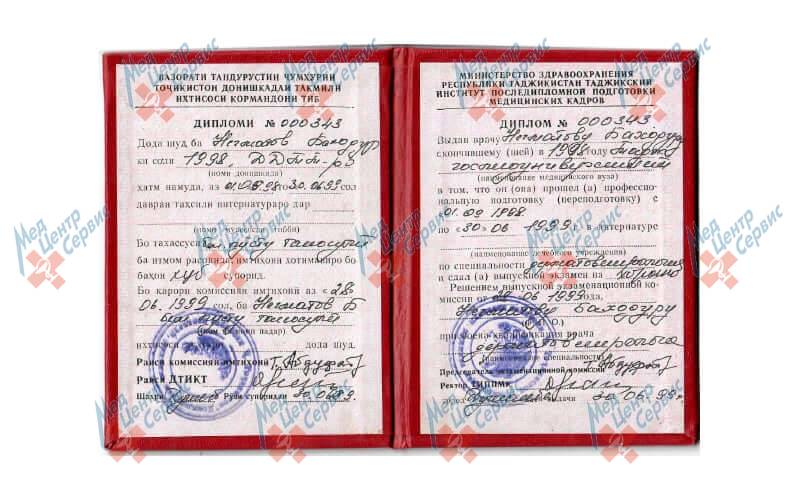 ВАЗОРАТИ ТАНДУРУСТИИ ЧУМХУРИИ
ТОЧИКИСТОН ДОНИШКАДАИ ТАКМИЛИ
ИХТИСОСИ КОРМАНДОНИ ТИБ
ДИПЛОМИ № 000343
Дода шуд ба Негматов Баходур
ки соли 1998,
(номи донишкада)
хатм намуда, аз 01.09.98 то 30.06.99 сол
давраи тахсили интернатураро дар
Бо тахассуси пусту
ба итмом расонида, имтихони хотимавиро бо
бахои хуб супорид.
Бо карори комиссияи имтихонй аз «28»
06. 1999 сол, ба Негматов Б
пусту
(ном фамилия падар)
ихтисоси дода шуд.
Раиси комиссияи имтихонй
Раиси ДТИКТ
Шахри Рузи супоридан 30.06.99.
МИНИСТЕРСТВО ЗДРАВООХРАНЕНИЯ
РЕСПУБЛИКИ ТАДЖИКИСТАН ТАДЖИКСКИЙ
ИНСТИТУТ ПОСЛЕДИПЛОМНОЙ ПОДГОТОВКИ
МЕДИЦИНСКИХ КАДРОВ
ДИПЛОМ № 000343
Выдан врачу Негматову Баходуру
скончившему (ией) в 1998 году
госмедуниверситет
(наименование медицинского вуза)
в том, что он (она) прошел (а) профессио-
нальную подготовку (переподготовку) с
«01.09 1998
по «30» 06 1999 г. в интернатуре
(наименование учебного учреждения)
по специальности дерматовенерология
сдал (а) выпускной экзамен на
Решением выпускной экзаменационной
комиссии от «28» 06 1999 г.
Негматову Баходуру
(Ф. И. О.)
присвоена квалификация врача
дерматовенеролога
(наименование специальности)
Председатель экзаменационной комиссии
Ректор ТИППМК
город Душанбе дата выдачи 30.06.99 г.
Мед Центр Сервис